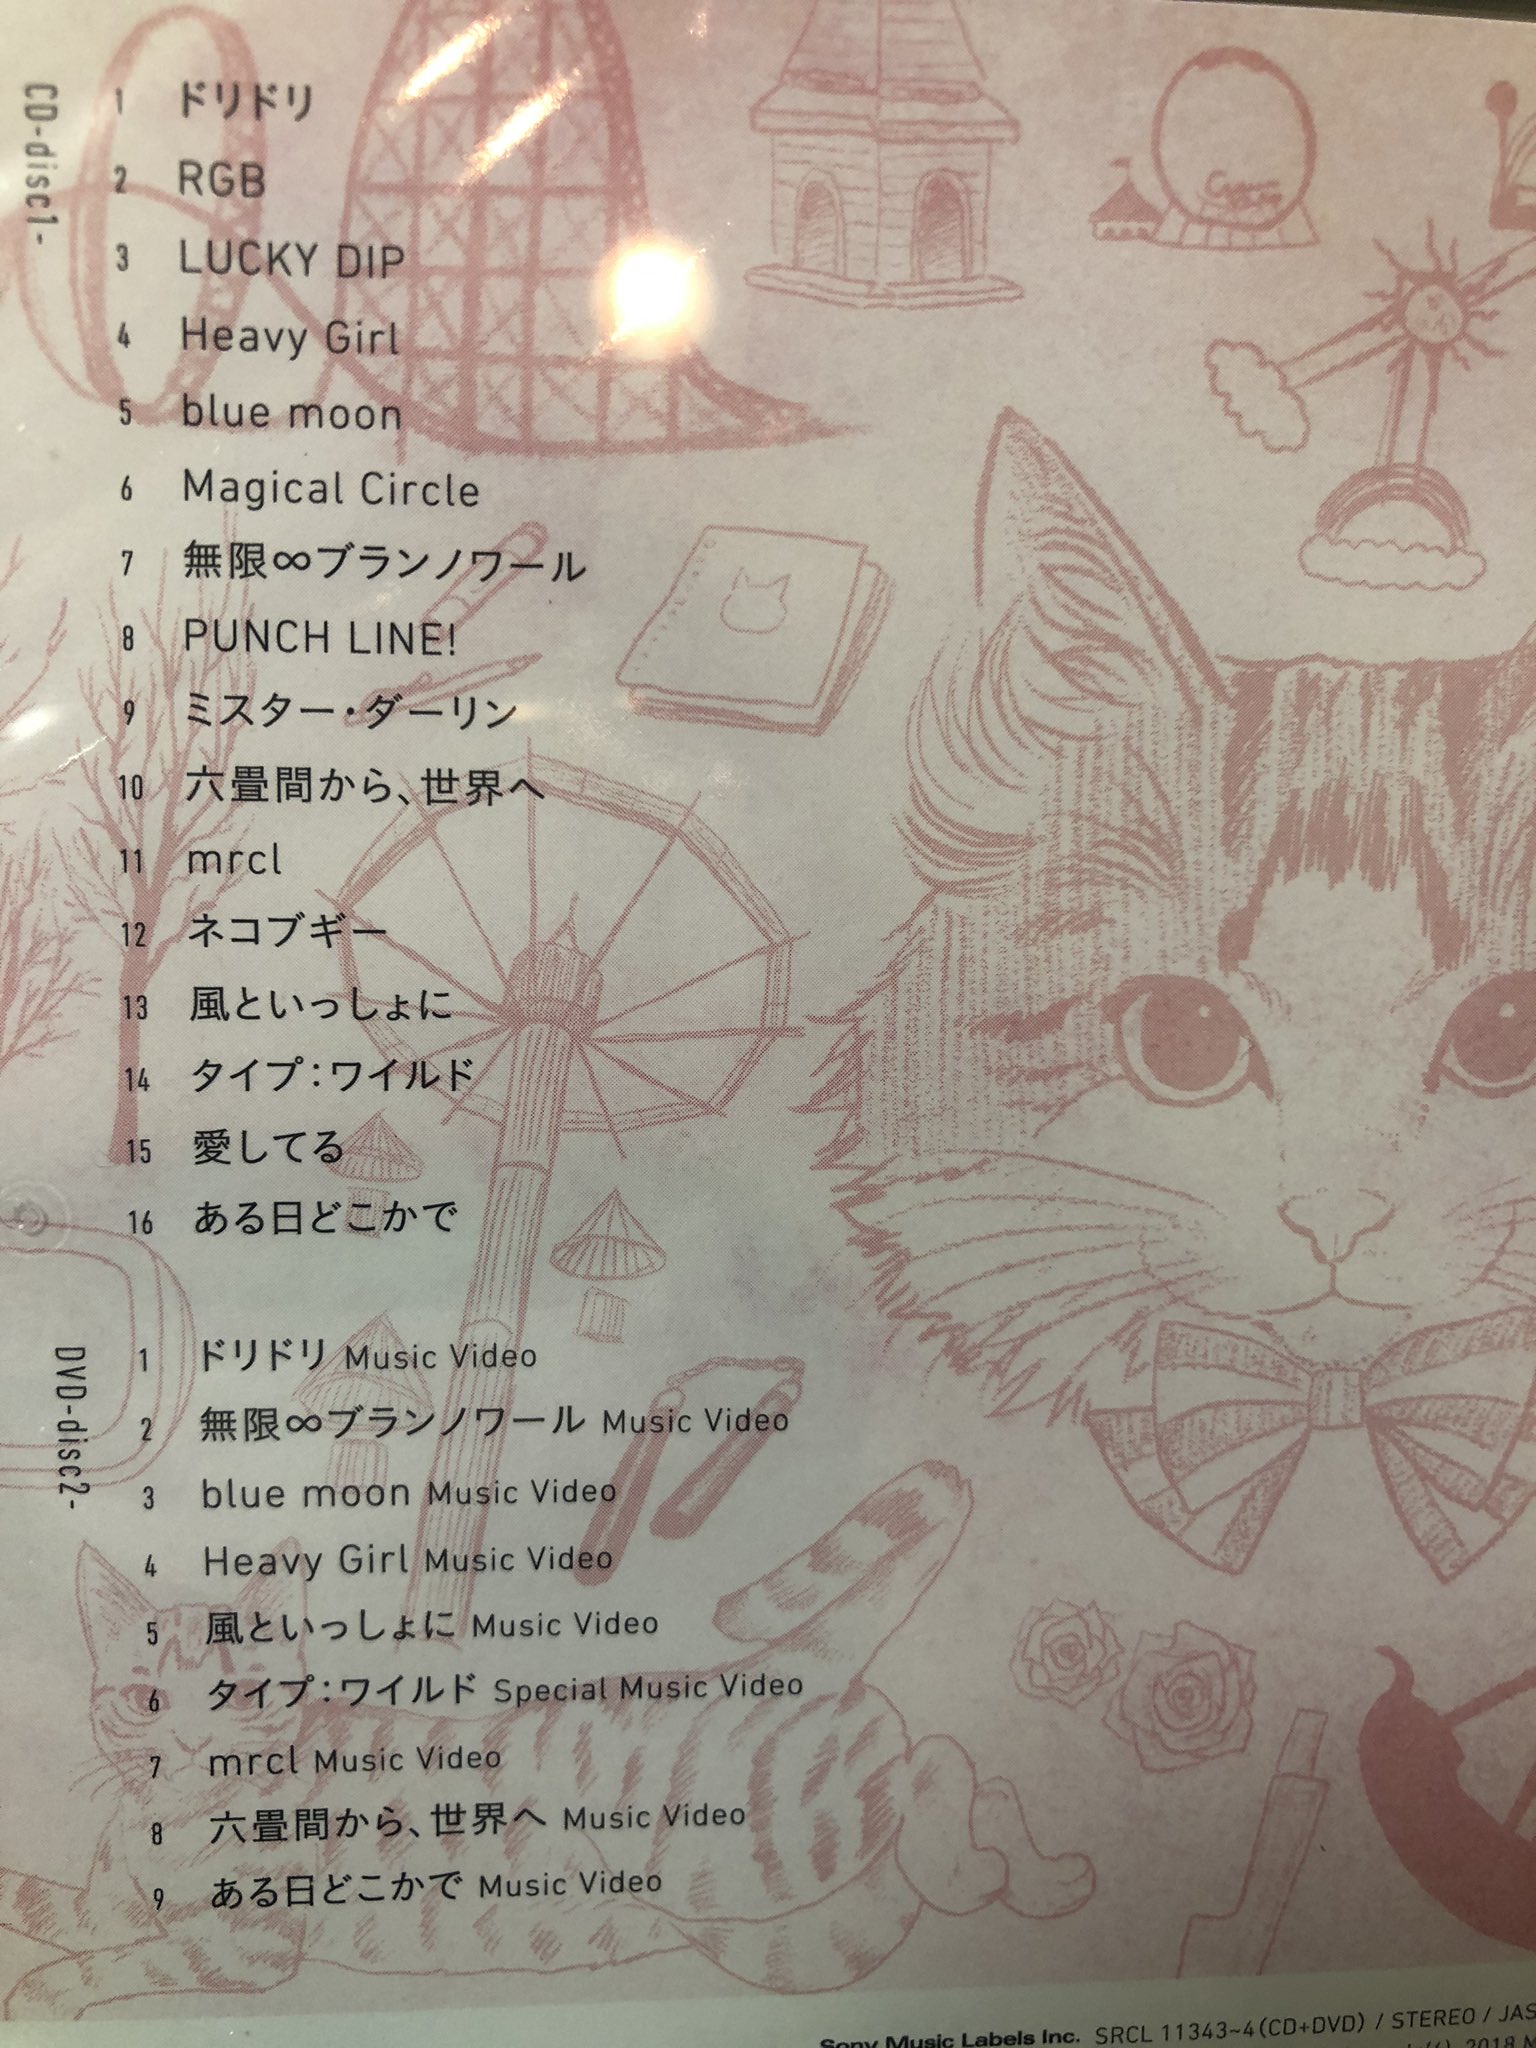 CD-disc1-
1 ドリドリ
2 RGB
3 LUCKY DIP
4 Heavy Girl
5 blue moon
6 Magical Circle
7 無限∞ブランノワール
8 PUNCH LINE!
9 ミスター・ダーリン
10 六畳間から、世界へ
11 mrcl
12 ネコブギー
13 風といっしょに
14 タイプ：ワイルド
15 愛してる
16 ある日どこかで
DVD-disc2-
1 ドリドリ Music Video
2 無限∞ブランノワール Music Video
3 blue moon Music Video
4 Heavy Girl Music Video
5 風といっしょに Music Video
6 タイプ：ワイルド Special Music Video
7 mrcl Music Video
8 六畳間から、世界へ Music Video
9 ある日どこかで Music Video
Sony Music Labels Inc. SRCL 11343~4(CD+DVD) / STEREO / JAS
2018